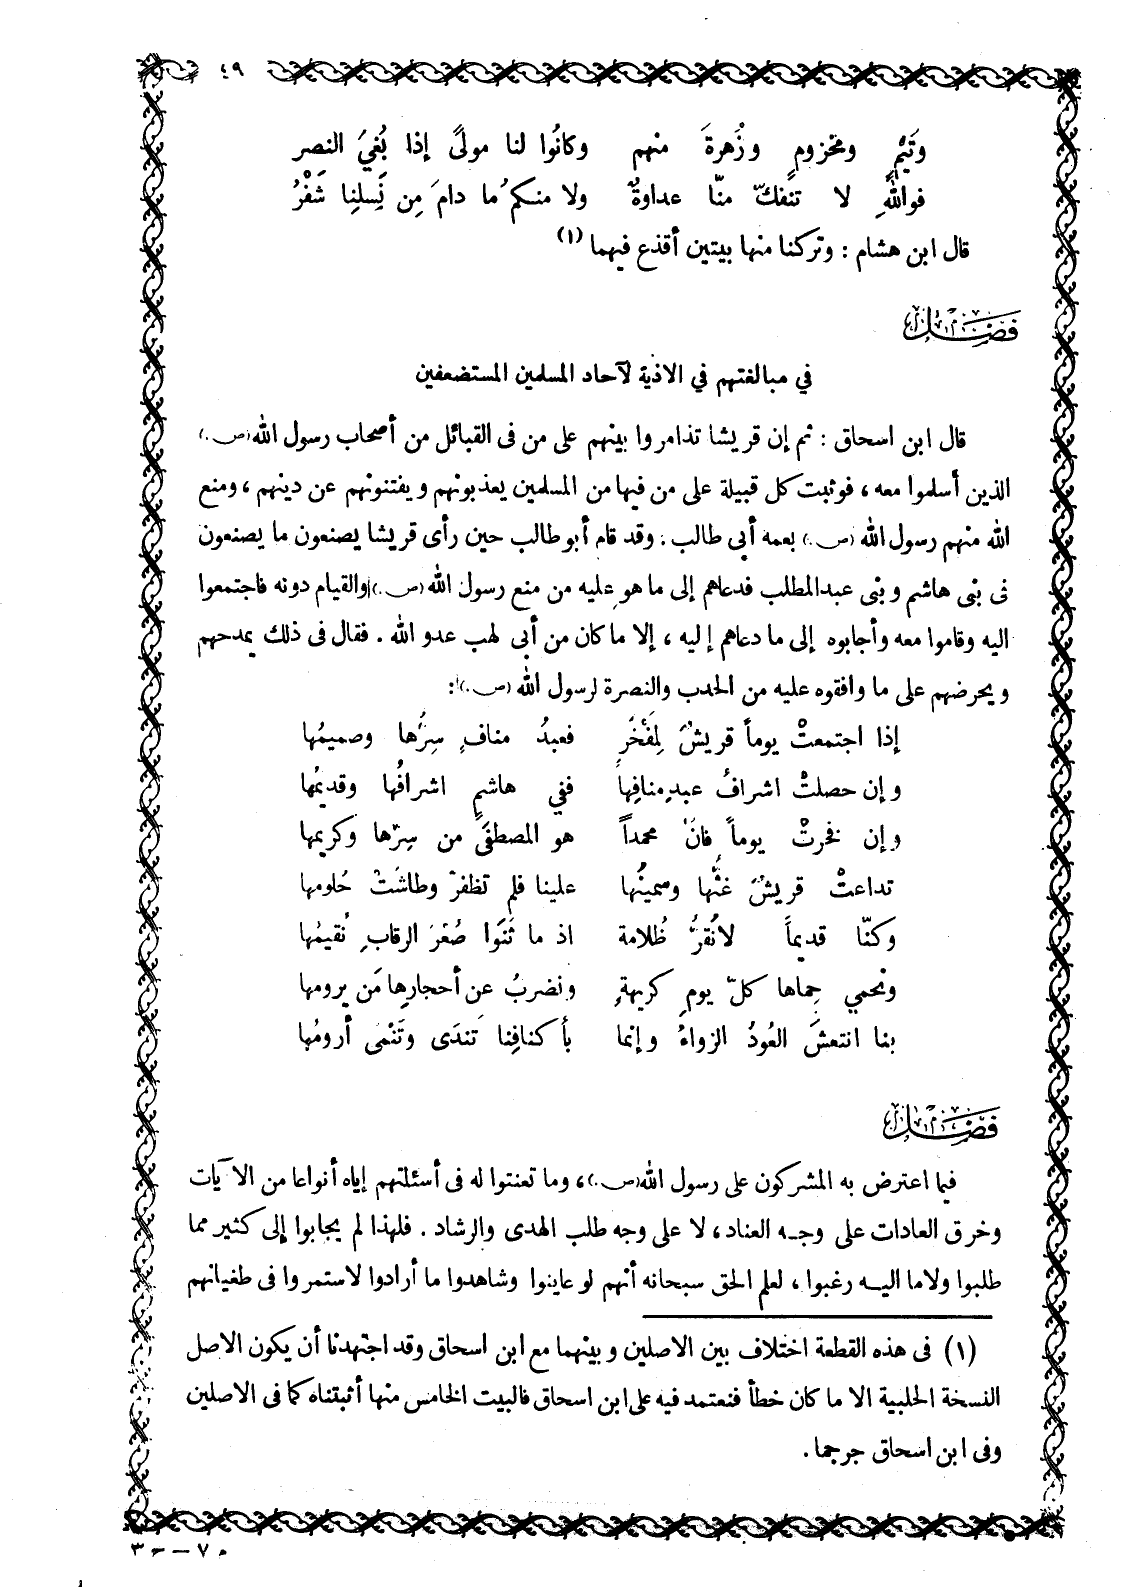 ٤٩
وَتَيْمٌ ومخزوم وزُهرةَ منهم وكانُوا لنا مولىً إذا بُغيَ النصر
فواللّهِ لا تنفكّ منّا عداوةٌ ولا منكمُ ما دامَ مِن نَسلِنا شَفْرُ
قال ابن هشام : وتركنا منها بيتين أقذع فيهما (١)
فصل
في مبالغتهم في الاذية لآحاد المسلمين المستضعفين
قال ابن اسحاق : ثم إن قريشا تذامروا بينهم على من فى القبائل من أصحاب رسول الله (ص.)
الذين أسلموا معه ، فوثبت كل قبيلة على من فيها من المسلمين يعذبونهم ويفتنونهم عن دينهم ، ومنع
الله منهم رسول الله (ص.) بعمه أبي طالب . وقد قام أبو طالب حين رأى قريشا يصنعون ما يصنعون
فى بنى هاشم وبنى عبدالمطلب فدعاهم إلى ما هو عليه من منع رسول الله (ص.) والقيام دونه فاجتمعوا
اليه وقاموا معه وأجابوه إلى ما دعاهم إليه ، إلا ما كان من أبى لهب عدو الله . فقال فى ذلك يمدحهم
ويحرضهم على ما وافقوه عليه من الحدب والنصرة لرسول الله (ص.) :
إذا اجتمعتْ يوماً قريشٌ لِمَفْخَرٍ فعبدُ منافٍ سِرُّها وصميمُها
وإن حصلتْ اشرافُ عبدِ منافِها ففي هاشمٍ اشرافُها وقديمُها
وإن فخرتْ يوماً فانَّ محمداً هو المصطفَى من سِرّها وكريمها
تداعتْ قريشٌ غثُّها وسمينُها علينا فلم تظفرْ وطاشَتْ حُلومها
وكنّا قديماً لانُقرُّ ظُلامة اذ ما ثَنَوا صُعْرَ الرقابِ نُقيمُها
ونحمي حِماها كلّ يومٍ كريهةٍ ونضربُ عن أحجارِها مَن يرومها
بنا انتعشَ العُودُ الزواءُ وإنما بأكنافِنا تَندَى وتَنْمى أرومُها
فصل
فيما اعترض به المشركون على رسول الله (ص.) ، وما تعنتوا له فى أسئلتهم إياه أنواعا من الآيات
وخرق العادات على وجه العناد ، لا على وجه طلب الهدى والرشاد . فلهذا لم يجابوا إلى كثير مما
طلبوا ولاما اليه رغبوا ، لعلم الحق سبحانه أنهم لو عاينوا وشاهدوا ما أرادوا لاستمروا فى طغيانهم
(١) فى هذه القطعة اختلاف بين الاصلين وبينهما مع ابن اسحاق وقد اجتهدنا أن يكون الاصل
النسخة الحلبية الا ما كان خطأ فنعتمد فيه على ابن اسحاق فالبيت الخامس منها أثبتناه كما فى الاصلين
وفى ابن اسحاق جرجما .
م ٧ – ج ٣